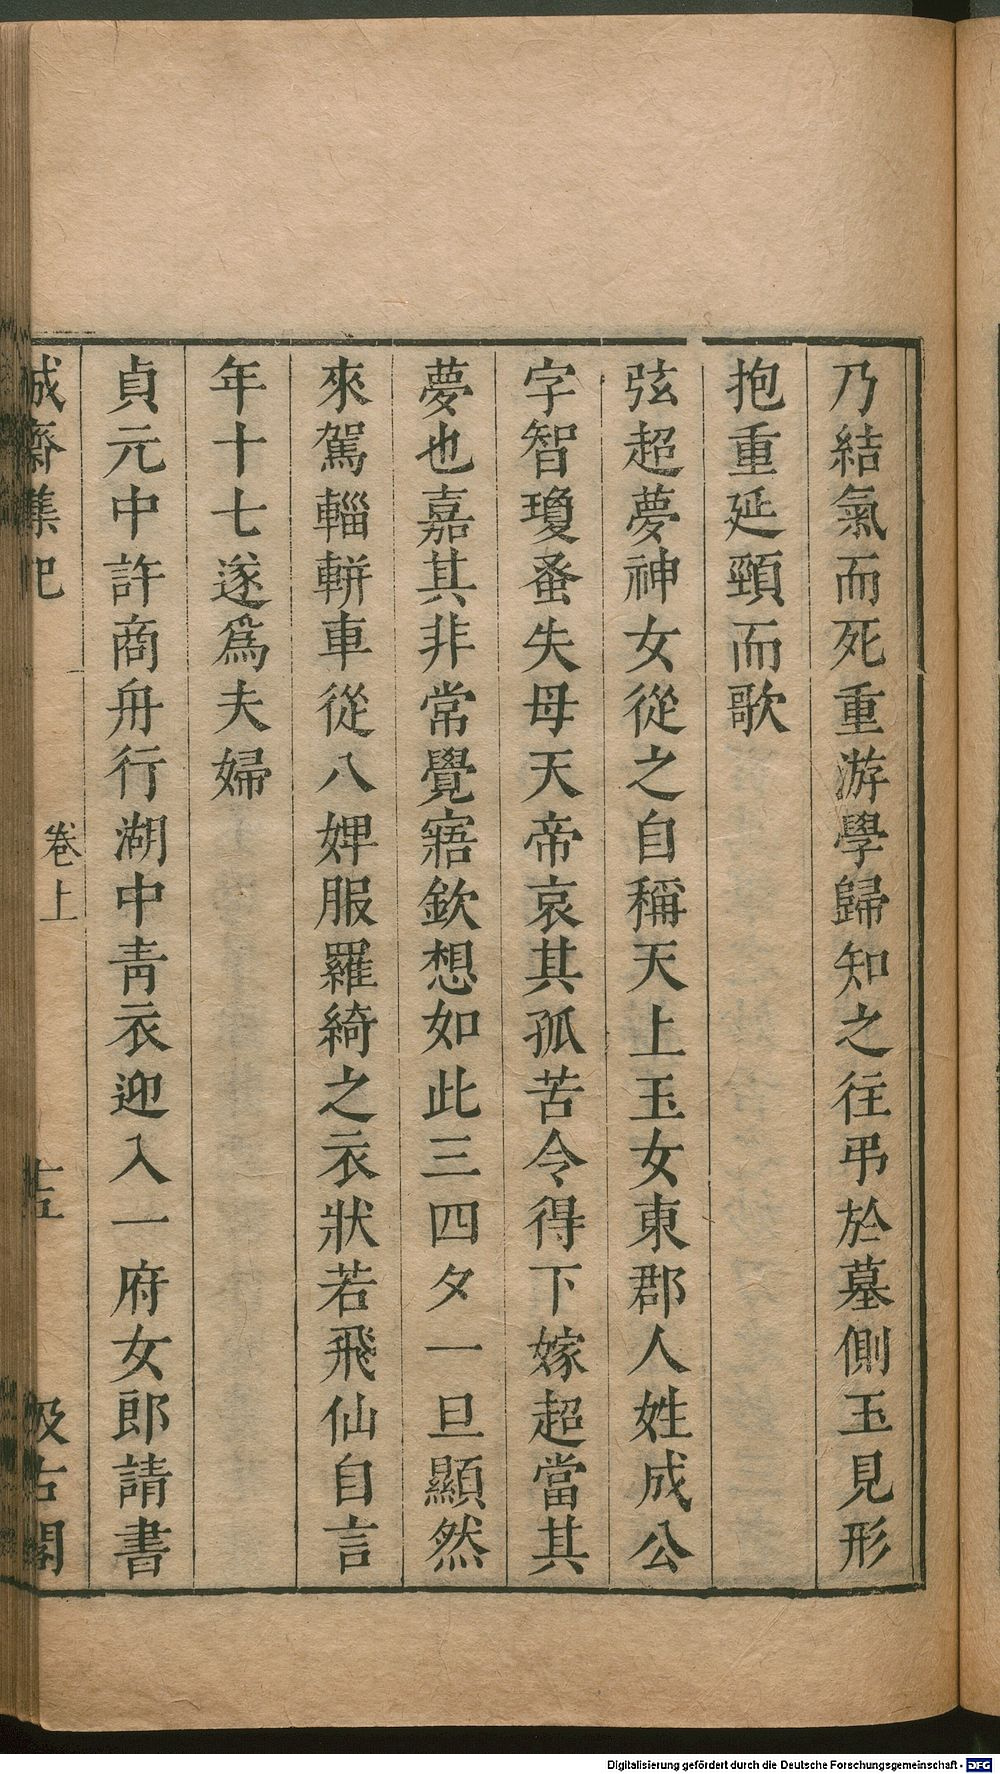 乃結氣而死重游學歸知之往弔於墓側玉見形
抱重延頸而歌
弦超夢神女從之自稱天上玉女東郡人姓成公
字智瓊蚤失母天帝哀其孤苦令得下嫁超當其
夢也嘉其非常覺寤欽想如此三四夕一旦顯然
來駕輜軿車從八婢服羅綺之衣狀若飛仙自言
年十七遂爲夫婦
貞元中許商舟行湖中青衣迎入一府女郎請書
誠齋集記 卷上 十五 汲古閣
Digitalisierung gefördert durch die Deutsche Forschungsgemeinschaft - DFG